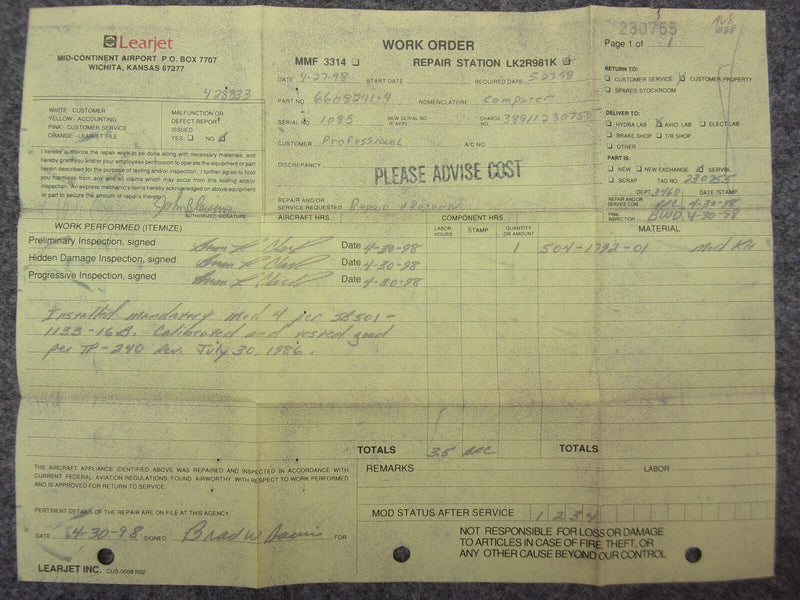 Learjet
MID-CONTINENT AIRPORT P.O. BOX 7707
WICHITA, KANSAS 67277
WORK ORDER
MMF 3314 REPAIR STATION LK2R981K
230755
Page 1 of 1
DATE 4-27-98 START DATE REQUIRED DATE 5-07-98
PART NO. 6608241-4 NOMENCLATURE Computer
SERIAL NO. 1085 NEW SERIAL NO. (IF APPL.) CHARGE NO. 38911230755
CUSTOMER Professional A/C NO.
DISCREPANCY
PLEASE ADVISE COST
REPAIR AND/OR
SERVICE REQUESTED Repair & Return
428333
WHITE - CUSTOMER
YELLOW - ACCOUNTING
PINK - CUSTOMER SERVICE
ORANGE - LEARJET FILE
MALFUNCTION OR
DEFECT REPORT
ISSUED
YES NO
I hereby authorize the repair work to be done along with necessary materials, and
hereby grant you and/or your employees permission to operate the equipment or part
herein described for the purpose of testing and/or inspection. I further agree to hold
you harmless from any and all claims which may occur from this testing and/or
inspection. An express mechanic's lien is hereby acknowledged on above equipment
or part to secure the amount of repairs thereto.
AUTHORIZED SIGNATURE
RETURN TO:
CUSTOMER SERVICE CUSTOMER PROPERTY
SPARES STOCKROOM
DELIVER TO:
HYDRA LAB AVIO. LAB ELECT. LAB
BRAKE SHOP T/R SHOP
OTHER
PART IS:
NEW NEW EXCHANGE SERVBL
SCRAP TAG NO 230755
DEPT. 3460 DATE/STAMP
REPAIR AND/OR
SERVICE COM. 4-30-98
FINAL
INSPECTION BWD 4-30-98
WORK PERFORMED (ITEMIZE) AIRCRAFT HRS. COMPONENT HRS.
LABOR HOURS STAMP QUANTITY OR AMOUNT MATERIAL
Preliminary Inspection, signed Date 4-30-98 1 504-1792-01 Mod Kit
Hidden Damage Inspection, signed Date 4-30-98
Progressive Inspection, signed Date 4-30-98
Installed mandatory Mod 4 per SB501-
1133-16B. Calibrated and tested good
per TP-240 Rev. July 30, 1986.
TOTALS 3.5 TOTALS
THE AIRCRAFT APPLIANCE IDENTIFIED ABOVE WAS REPAIRED AND INSPECTED IN ACCORDANCE WITH
CURRENT FEDERAL AVIATION REGULATIONS, FOUND AIRWORTHY WITH RESPECT TO WORK PERFORMED
AND IS APPROVED FOR RETURN TO SERVICE.
PERTINENT DETAILS OF THE REPAIR ARE ON FILE AT THIS AGENCY.
DATE 4-30-98 SIGNED Brad W Davis FOR
LEARJET INC. CUS-0006 R02
REMARKS LABOR
MOD STATUS AFTER SERVICE 1 2 3 4
NOT RESPONSIBLE FOR LOSS OR DAMAGE
TO ARTICLES IN CASE OF FIRE, THEFT, OR
ANY OTHER CAUSE BEYOND OUR CONTROL